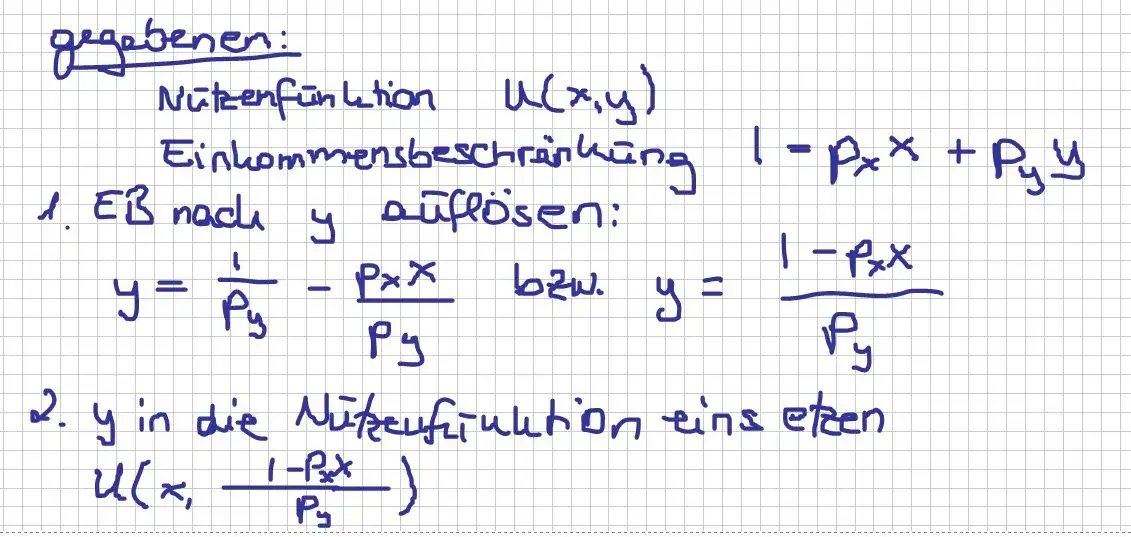 gegebenen:
Nutzenfunktion U(x,y)
Einkommensbeschränkung I = pₓx + p_y y
1. EB nach y auflösen:
y = I/p_y - pₓx/p_y bzw. y = (I - pₓx)/p_y
2. y in die Nutzenfunktion einsetzen
U(x, (I-pₓx)/p_y)